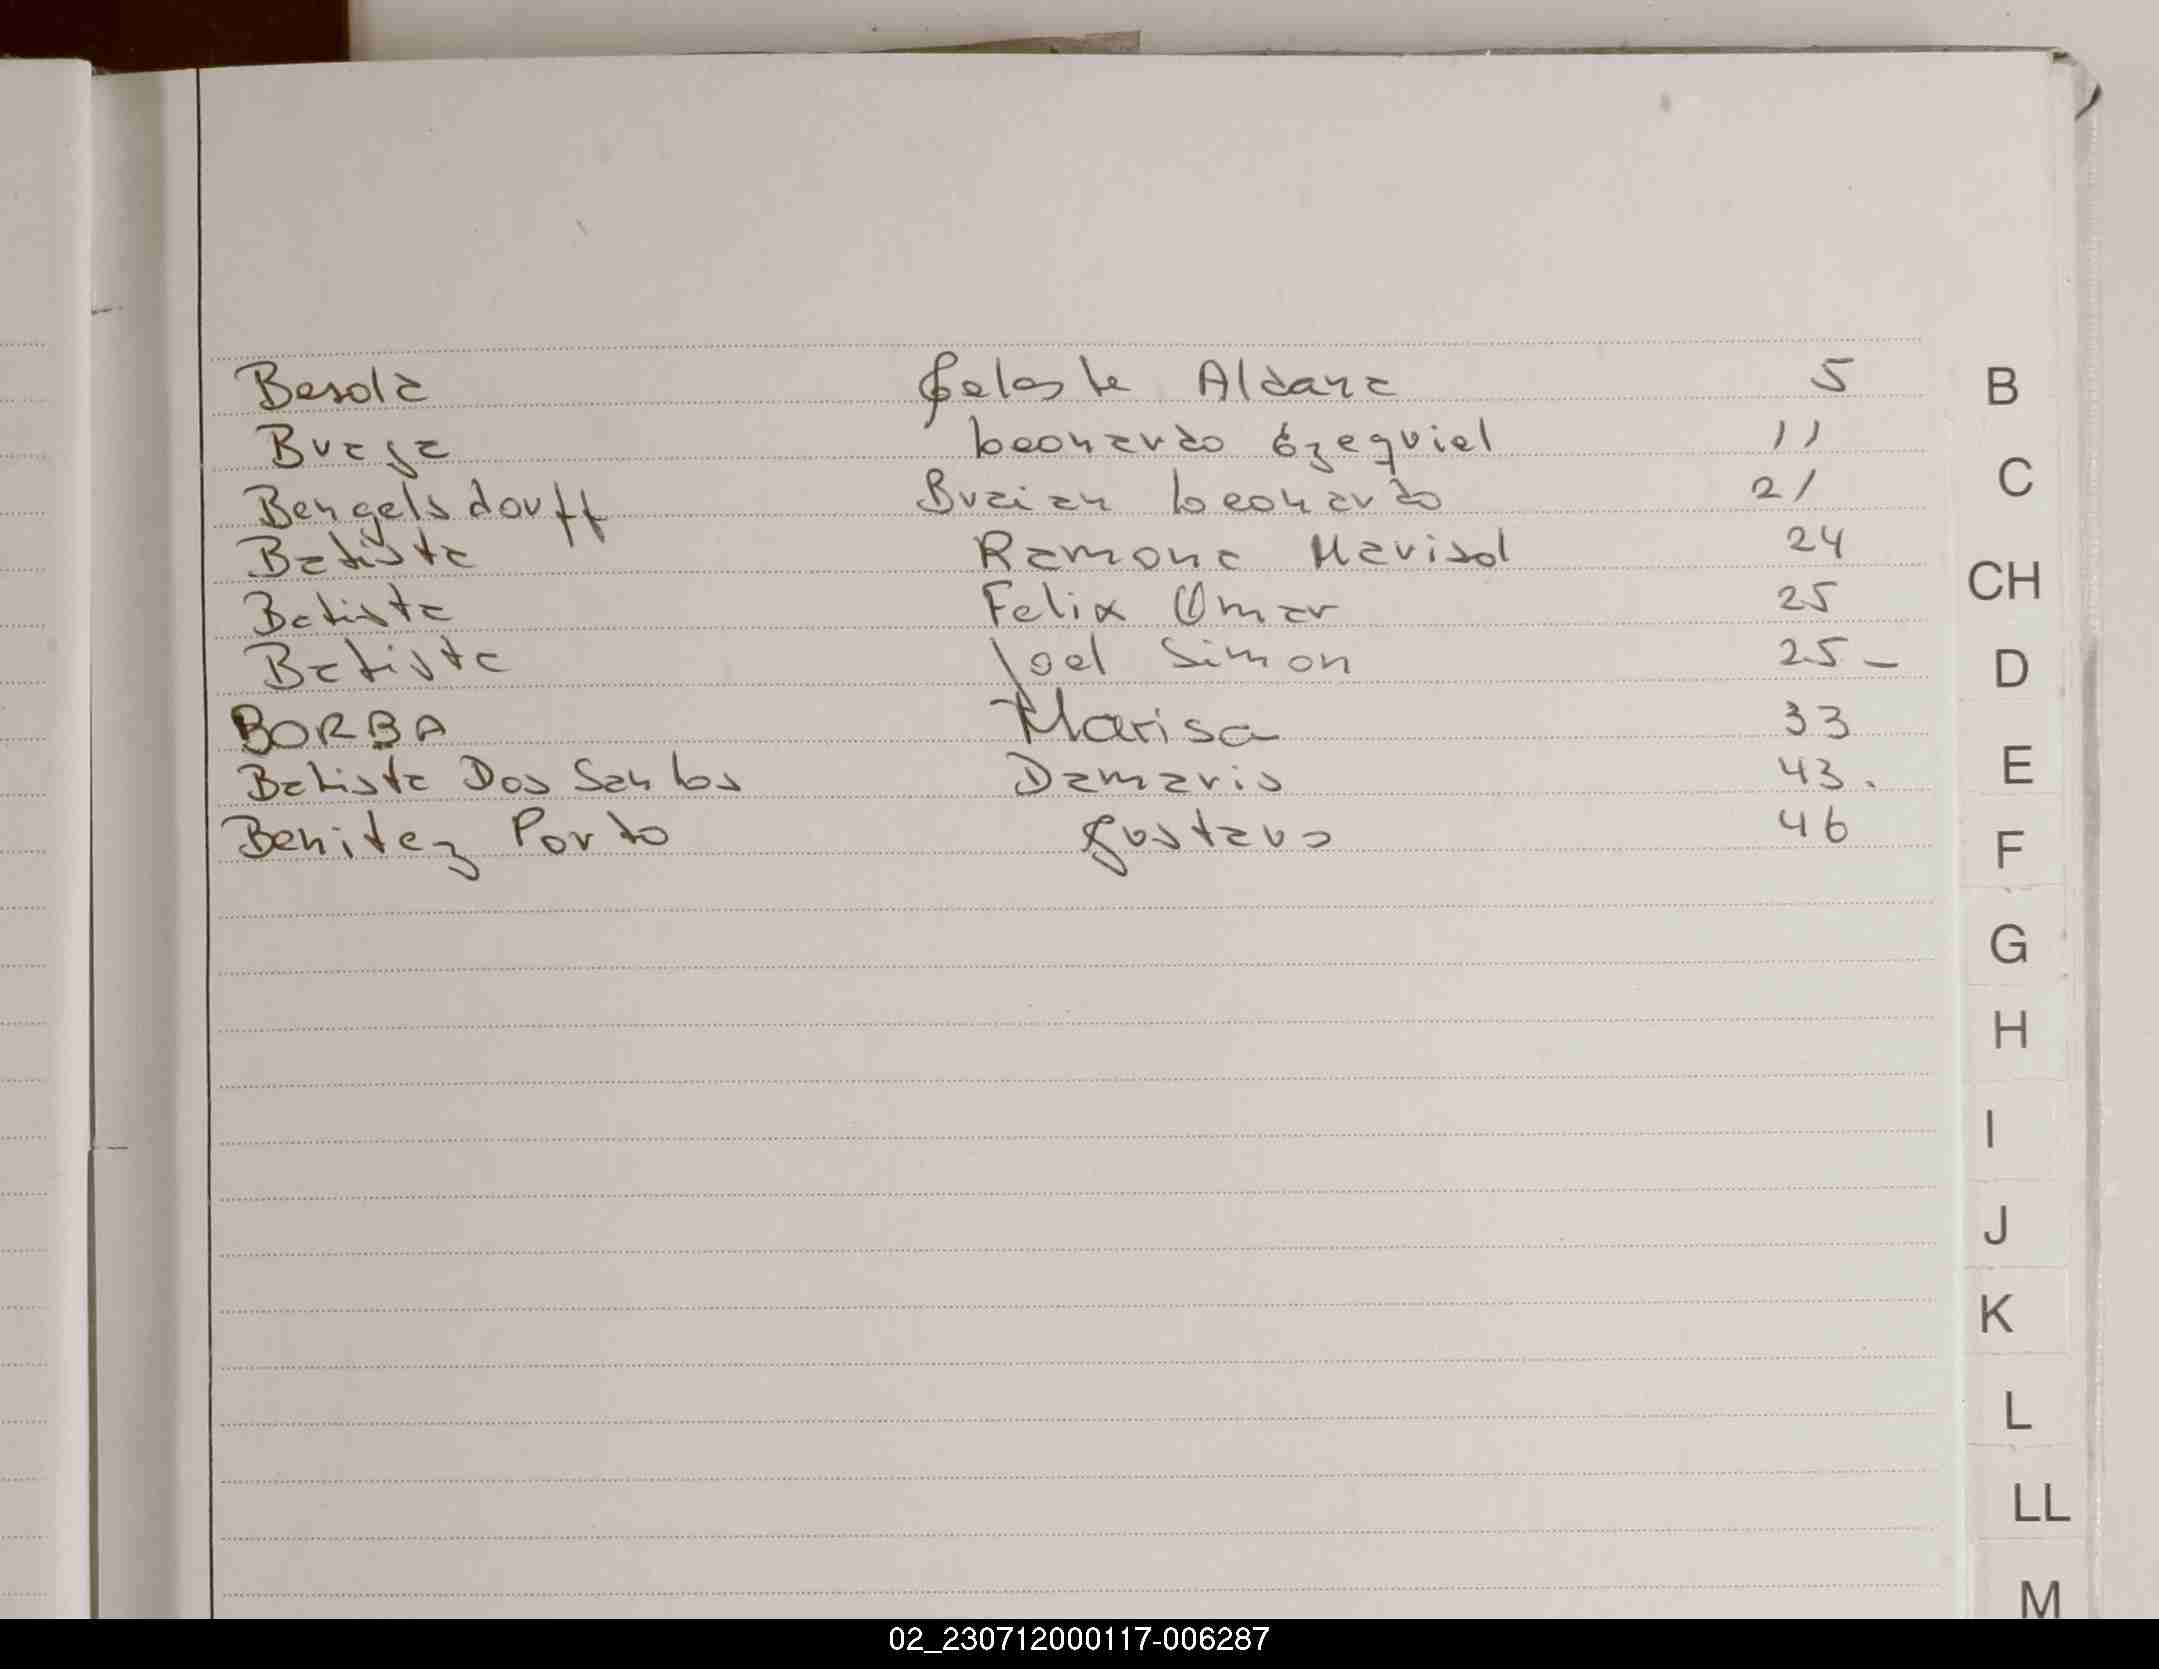 Besola Celeste Aldana 5 B
Braga Leonardo Ezequiel 11
Bengelsdorff Braian Leonardo 21 C
Batista Ramona Marisol 24
Batista Felix Omar 25 CH
Batista Joel Simon 25 – D
BORBA Marisa 33
Batista Dos Santos Damaris 43. E
Benitez Porto Gustavo 46 F
G
H
I
J
K
L
LL
M
02_230712000117-006287